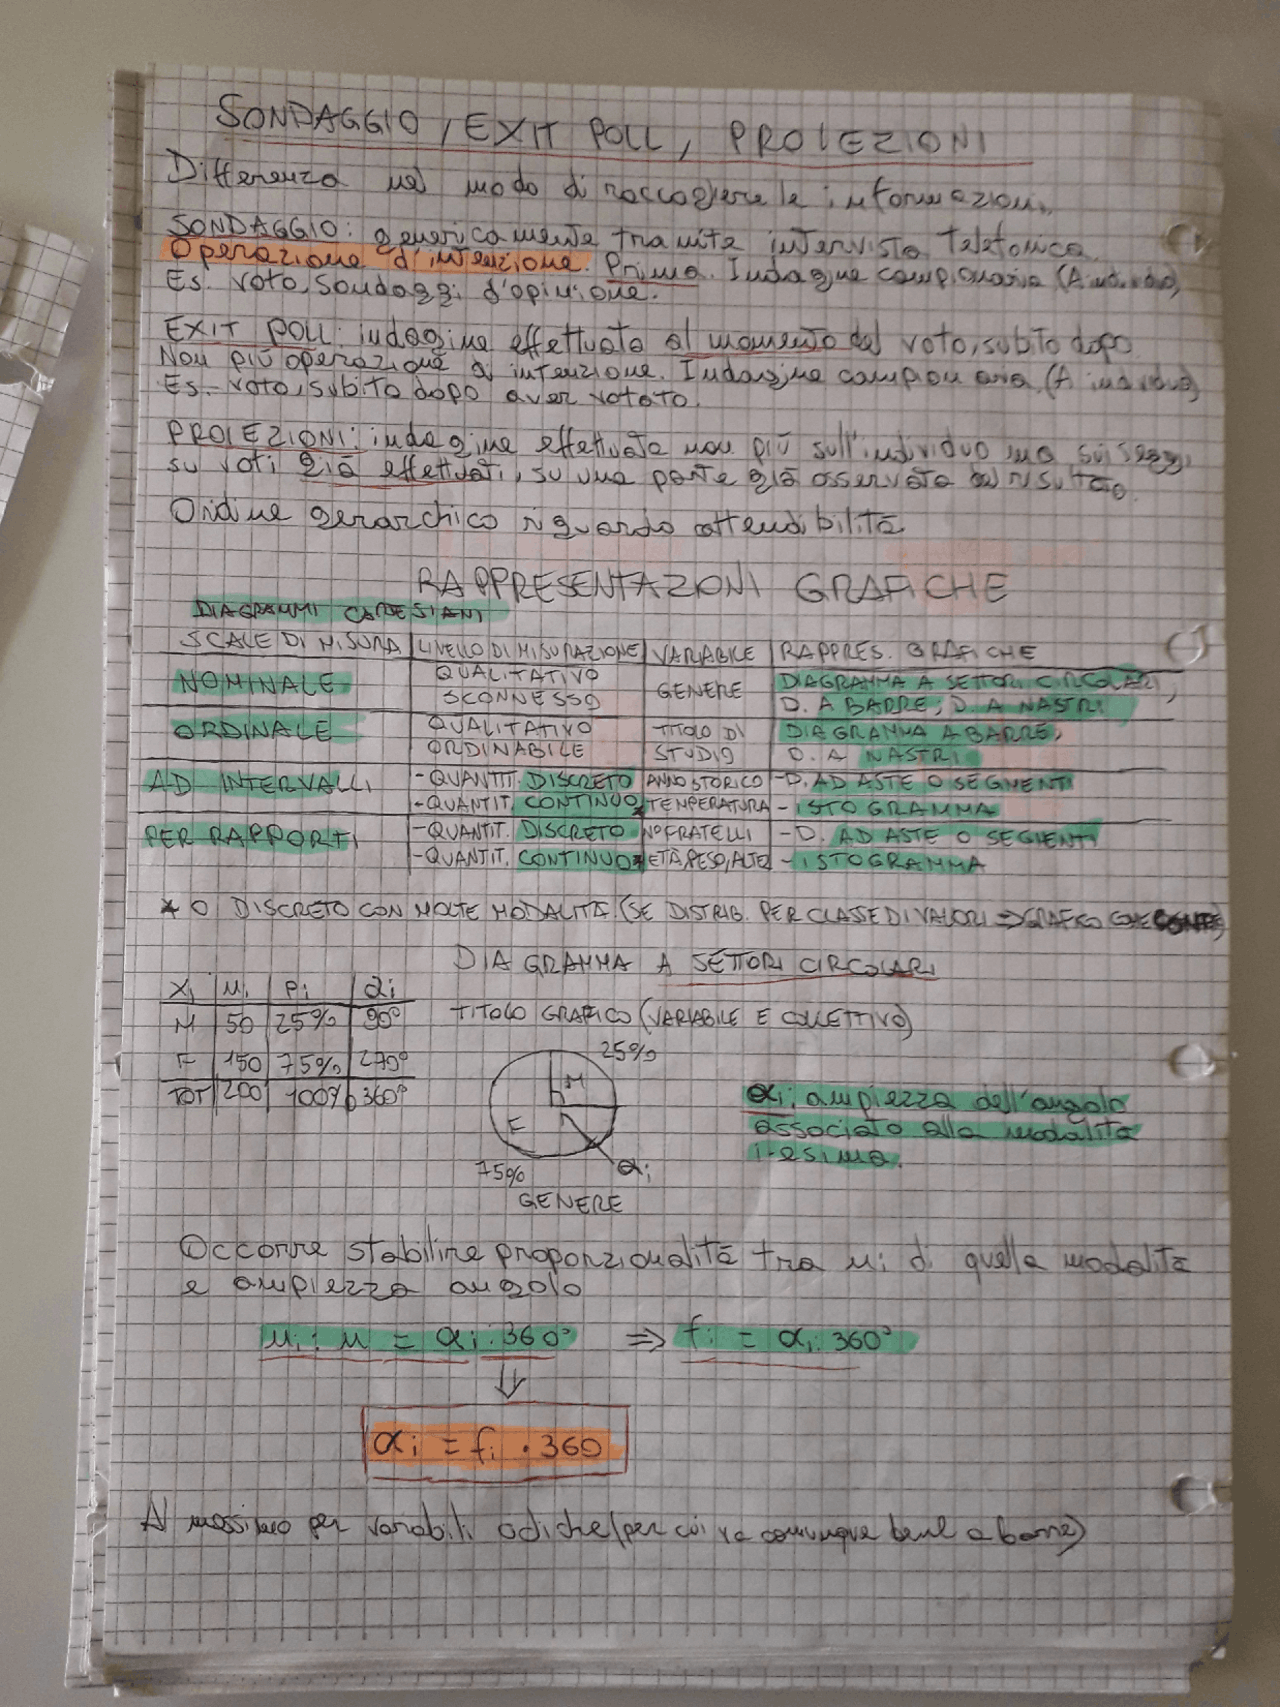 SONDAGGIO, EXIT POLL, PROIEZIONI
Differenza nel modo di raccogliere le informazioni.
SONDAGGIO: genericamente tramite intervista telefonica.
Operazione d'intenzione. Prima. Indagine campionaria (A individuo)
Es. voto, sondaggi d'opinione.
EXIT POLL: indagine effettuata al momento del voto, subito dopo
Non più operazione di intenzione. Indagine campionaria. (A individuo)
Es. voto, subito dopo aver votato.
PROIEZIONI: indagine effettuata non più sull'individuo ma sui seggi,
su voti già effettuati, su una parte già osservata del risultato.
Ordine gerarchico riguardo attendibilità.
RAPPRESENTAZIONI GRAFICHE
DIAGRAMMI CARTESIANI
SCALE DI MISURA | LIVELLO DI MISURAZIONE | VARIABILE | RAPPRES. GRAFICHE
NOMINALE | QUALITATIVO SCONNESSO | GENERE | DIAGRAMMA A SETTORI CIRCOLARI, D. A BARRE; D. A NASTRI
ORDINALE | QUALITATIVO ORDINABILE | TITOLO DI STUDIO | DIAGRAMMA A BARRE, D. A NASTRI
AD INTERVALLI | -QUANTIT. DISCRETO | ANNO STORICO | -D. AD ASTE O SEGMENTI
-QUANTIT. CONTINUO* | TEMPERATURA | - ISTOGRAMMA
PER RAPPORTI | -QUANTIT. DISCRETO | N° FRATELLI | -D. AD ASTE O SEGMENTI
-QUANTIT. CONTINUO* | ETÀ, PESO, ALTEZ | - ISTOGRAMMA
* O DISCRETO CON MOLTE MODALITÀ (SE DISTRIB. PER CLASSE DI VALORI ⇒ GRAFICO COME
DIAGRAMMA A SETTORI CIRCOLARI
Xi | ni | Pi | αi
M | 50 | 25% | 90°
F | 150 | 75% | 270°
TOT | 200 | 100% | 360°
TITOLO GRAFICO (VARIABILE E COLLETTIVO)
25%
M
F
75%
αi
GENERE
αi: ampiezza dell'angolo
associato alla modalità
i-esima.
Occorre stabilire proporzionalità tra ni di quella modalità
e ampiezza angolo
ni : n = αi : 360° ⇒ fi = αi : 360°
αi = fi · 360
Al massimo per variabili (per cui va comunque bene a barre)